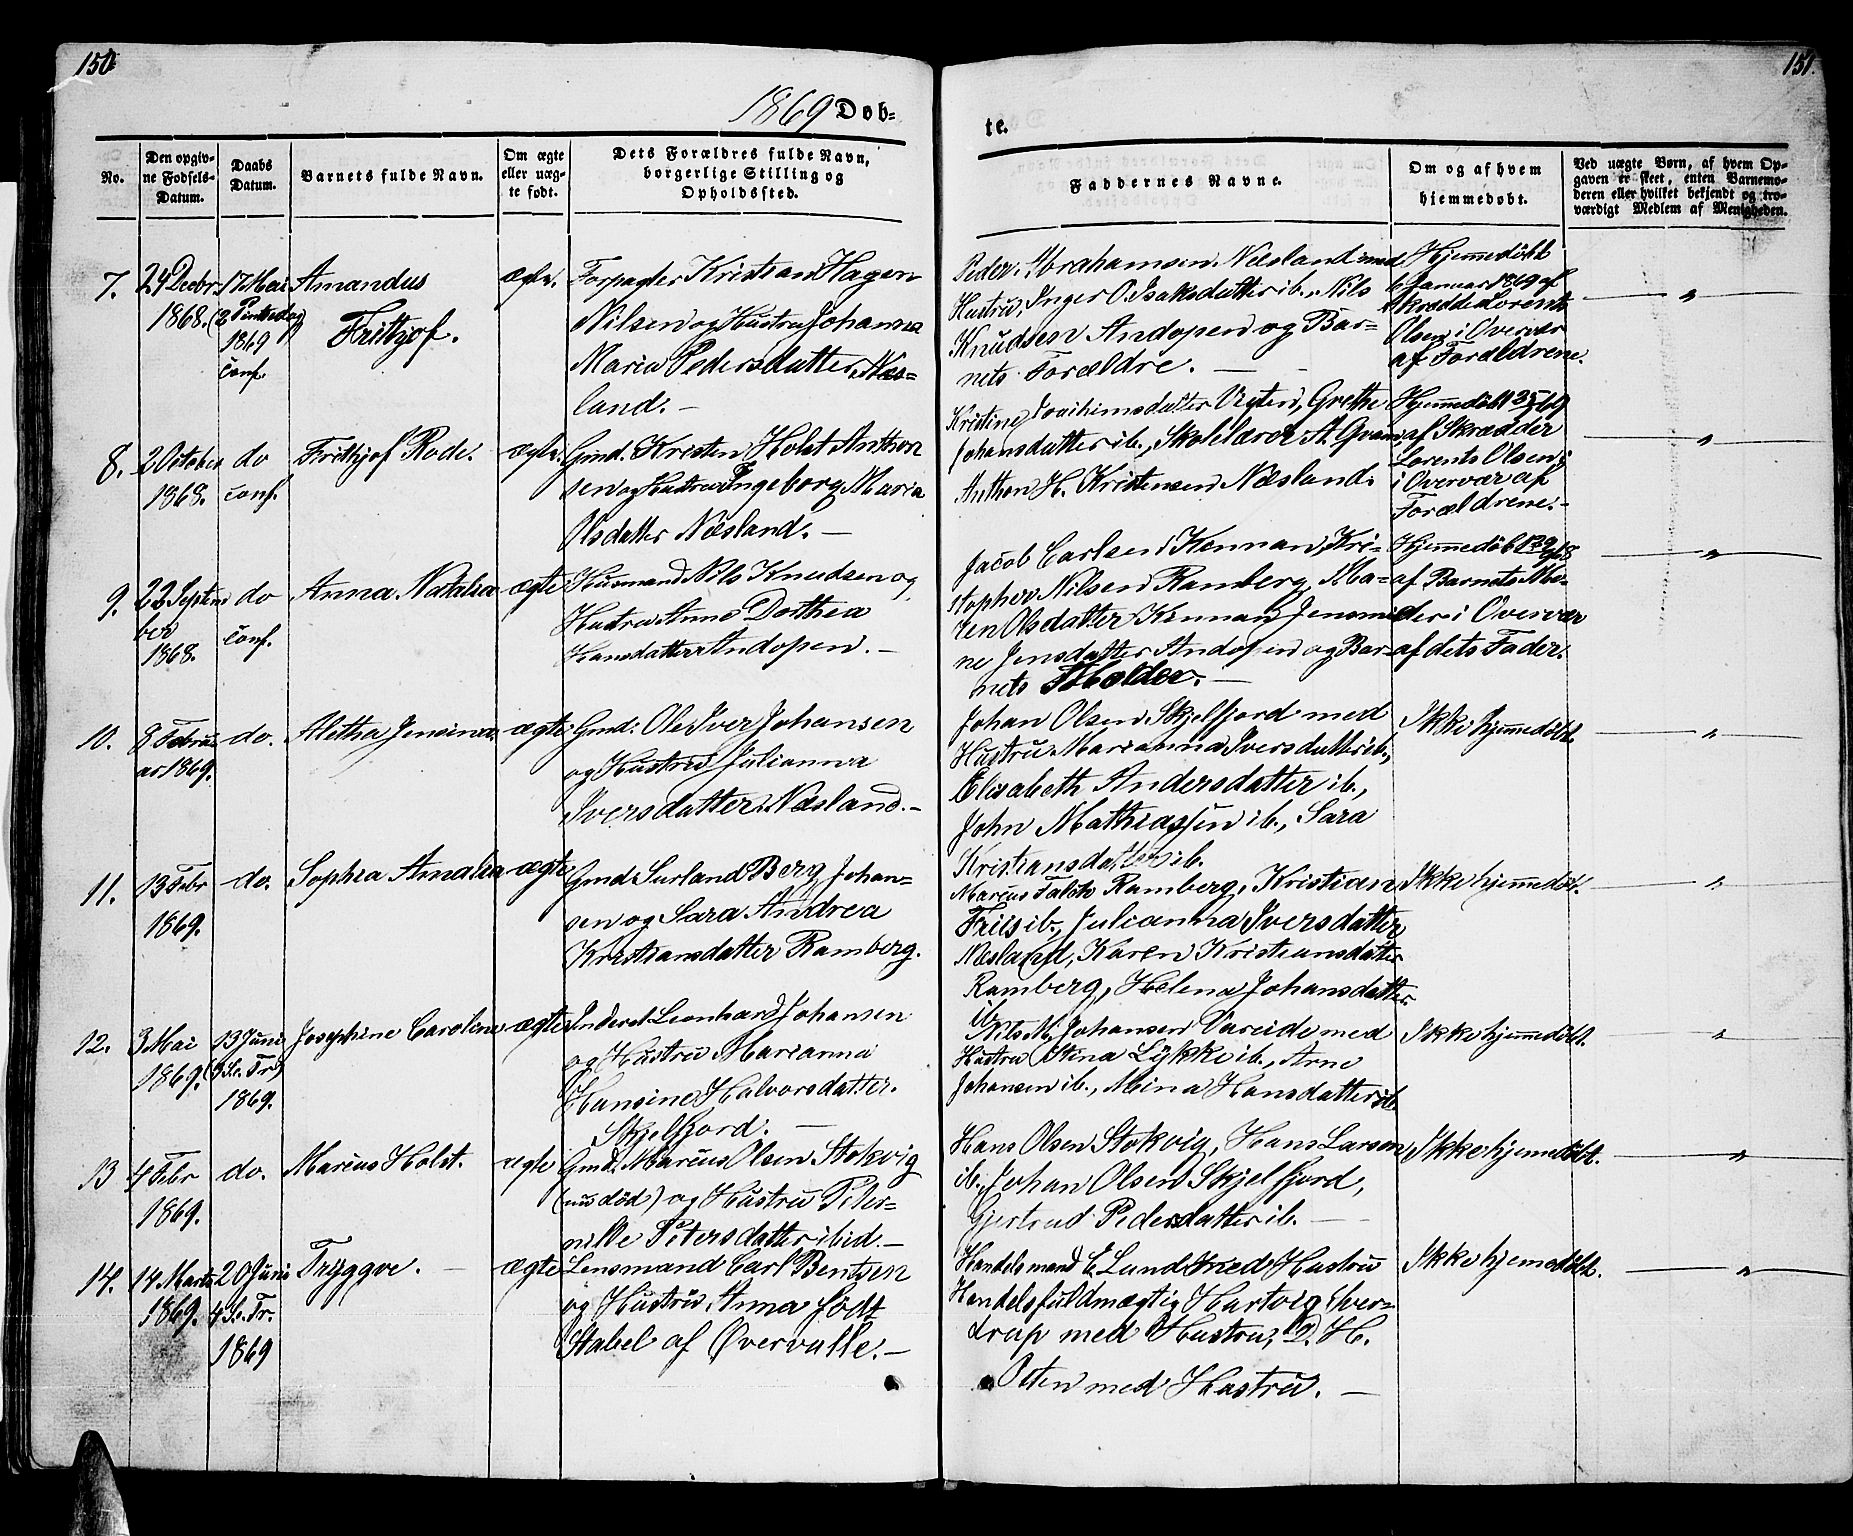 150
151.
1869 Døb-
te.
No.
Den opgiv-
ne Fødsels-
Datum.
Daabs
Datum.
Barnets fulde Navn.
Om ægte
eller uæg-
te født.
Dets Forældres fulde Navn,
borgerlige Stilling og
Opholdssted.
Faddernes Navne.
Om og af hvem
hjemmedøbt.
Ved uægte Børn, af hvem Op-
gaven er skeet, enten Barnemo-
deren eller hvilket bekjendt og tro-
værdigt Medlem af Menigheden.
7.
24 Decbr
1868.
17 Mai
(2 Pintsedag)
1869
conf.
Amandus
Frithjof.
ægte.
Forpagter Kristian Hagen
Nilsen og Hustru Johanna
Maria Pedersdatter Næs-
land. —
Peder Abrahamsen Næsland med
Hustru, Inger O. Isaksdatter ib., Nils
Knudsen Andopen og Bar-
nets Forældre. —
Hjemmedöbt
6 Januar 1869 af
Skrædder Lorents
Olsen i Overvær
af Forældrene.
— " —
8.
2 October
1868.
do
conf.
Frithjof Rode.
ægte.
Gmd. Kristen Holst Anthon
sen og Hustru Ingeborg Maria
Olsdatter Næsland. —
Kristine Joachimsdatter Vigten, Grethe
Johansdatter ib., Skolelærer A. Qvam,
Anthon H. Kristensen Næsland.
Hjemmedöbt
af Skrædder
Lorents Olsen
i Overvær af
Forældrene. -
— " —
9.
22 Septem
ber
1868.
do
conf.
Anna Natalia
ægte
Husmand Nils Knudsen og
Hustru Anne Dorthea
Hansdatter Andopen. —
Jacob Carlsen Kennan, Kri-
stopher Nilsen Ramberg, Ma-
ren Olsdatter Kennan, Jensmi-
ne Jensdatter Andopen og Bar-
nets Forældre. —
Hjemmedöbt
af Barnets Mo-
der i Overvær
af dets Fader.
— " —
10.
8 Febru
ar 1869.
do.
Aletha Jensina.
ægte
Gmd. Ole Iver Johansen
og Hustru Julianna
Iversdatter Næsland. —
Johan Olsen Skjelfjord med
Hustru Marianna Iversdatter ib.,
Elisabeth Andersdatter ib.,
John Mathiassen ib., Sara
Kristiansdatter ib.
Ikke hjemmedöbt.
— " —
11.
13 Febr
1869.
do.
Sophia Amalia
ægte
Gmd. Surland Berg Johan-
sen og Sara Andrea
Kristiansdatter Ramberg.
Marcus Falch Ramberg, Kristian
Friis ib., Julianna Iversdatter
Næsland, Karen Kristiansdatter
Ramberg, Helena Johansdatter
ib.
Ikke hjemmedöbt.
— " —
12.
3 Mai
1869.
13 Juni
(3 S. e. Tr.)
1869.
Josephine Caroline
ægte
Inderst Leonhard Johansen
og Hustru Marianna
Hansine Halvorsdatter.
Skjelfjord. —
Nils M. Johansen Vareide med
Hustru Stina Lykke ib., Arne
Johansen ib., Mina Hansdatter ib.
Ikke hjemmedöbt.
— " —
13
4 Febr
1869.
do.
Marius Holst.
ægte
Gmd. Marius Olsen Stokvig
(nu död) og Hustru Peter-
nille Petersdatter ibid. —
Hans Olsen Stokvig, Hans Larsen
ib., Johan Olsen Skjelfjord,
Gjertrud Pedersdatter ib. —
Ikke hjemmedöbt.
— " —
14.
14 Marts
1869.
20 Juni
4 S. e. Tr.
1869
Tryggve. —
ægte
Lensmand Carl Bentzen
og Hustru Anna födt
Stabel af Övervalle. —
Handelsmand E. Lund med Hustru
Handelsfuldmægtig Hartvig Sver-
drup med Hustru, D. H.
Osten med Hustru. —
Ikke hjemmedöbt.
— " —